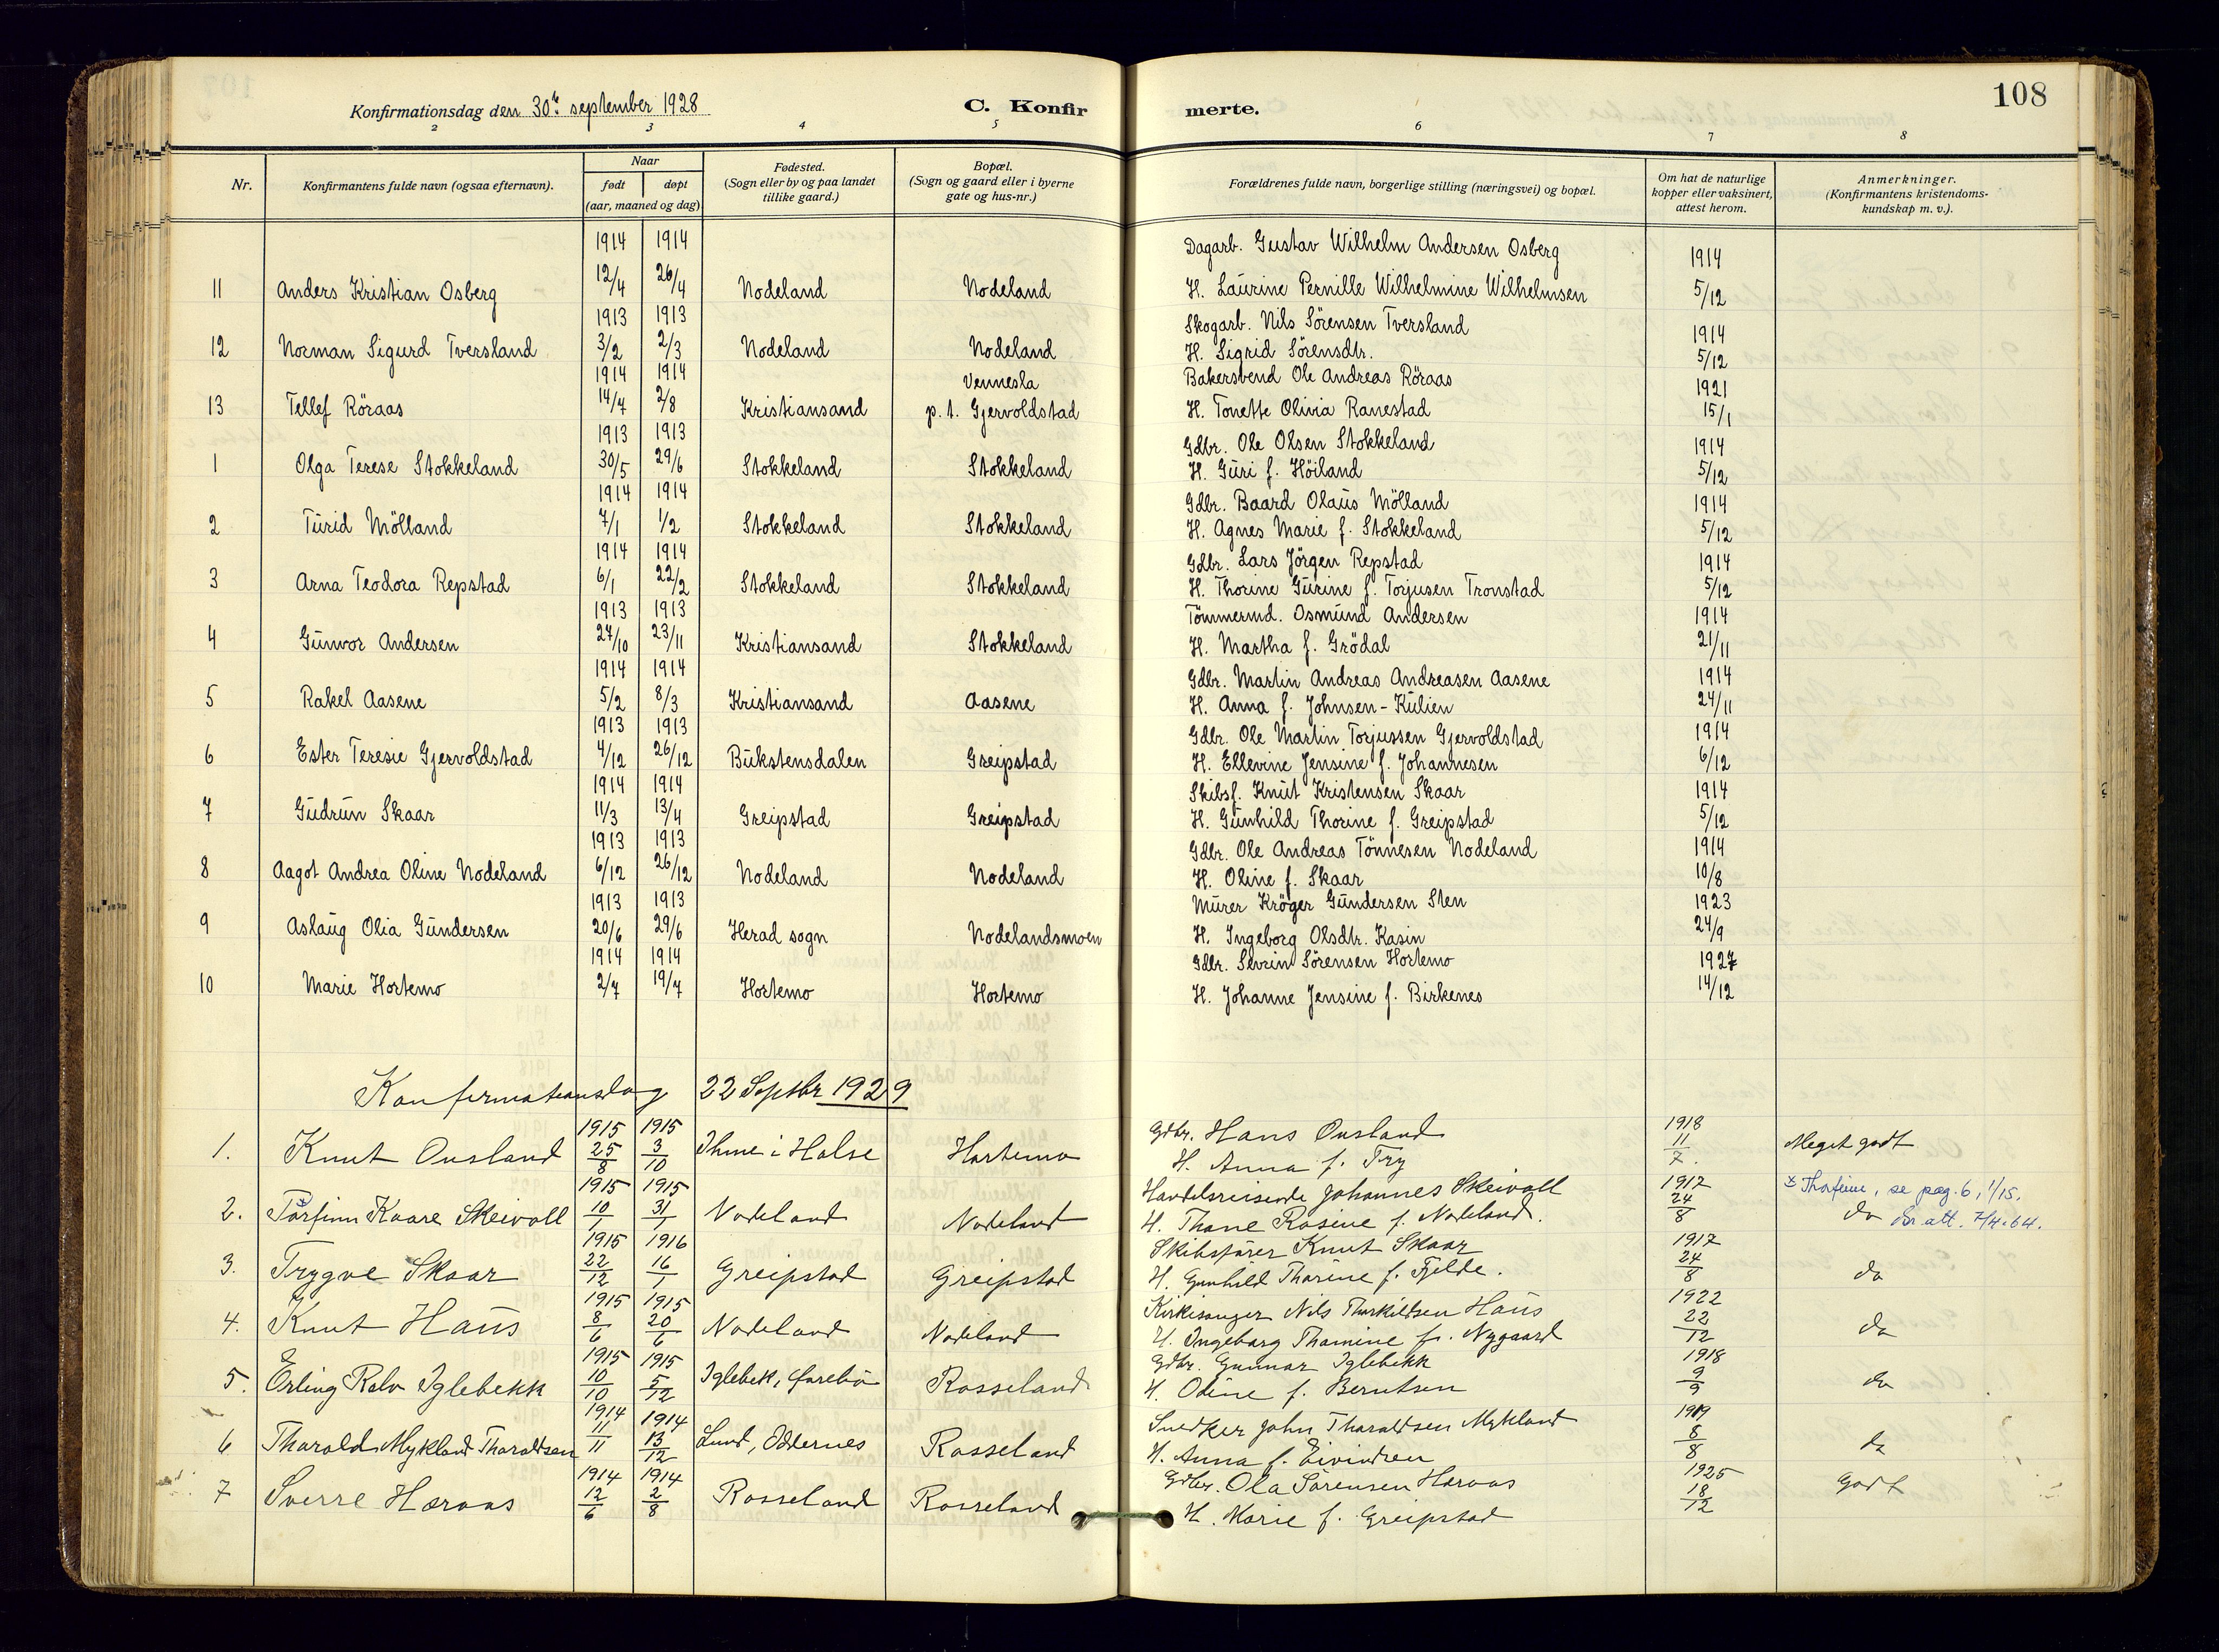 108
Konfirmationsdag den 30te september 1928 C. Konfirmerte.
2 3 4 5 6 7 8
Nr. Konfirmantens fulde navn (ogsaa efternavn). Naar født døpt (aar, maaned og dag) Fødested. (Sogn eller by og paa landet tillike gaard.) Bopæl. (Sogn og gaard eller i byerne gate og hus-nr.) Forældrenes fulde navn, borgerlige stilling (næringsvei) og bopæl. Om hat de naturlige kopper eller vaksinert, attest herom. Anmerkninger. (Konfirmantens kristendomskundskap m. v.).
1914 1914 Dagarb. Gustav Wilhelm Andersen Osberg 1914
11 Anders Kristian Osberg 12/4 26/4 Nodeland Nodeland H. Laurine Pernille Wilhelmine Wilhelmsen 5/12
1913 1913 Skogarb. Nils Sörensen Tversland 1914
12 Norman Sigurd Tversland 3/2 2/3 Nodeland Nodeland H. Sigrid Sörensdtr. 5/12
1914 1914 Vennesla Bakersvend Ole Andreas Röraas 1921
13 Tellef Röraas 14/4 2/8 Kristiansand p. t. Gjervoldstad H. Tonette Olivia Ranestad 15/1
1913 1913 Gdbr. Ole Olsen Stokkeland 1914
1 Olga Terese Stokkeland 30/5 29/6 Stokkeland Stokkeland H. Guri f. Höiland 5/12
1914 1914 Gdbr. Baard Olaus Mölland 1914
2 Turid Mölland 7/1 1/2 Stokkeland Stokkeland H. Agnes Marie f. Stokkeland 5/12
1914 1914 Gdbr. Lars Jörgen Repstad 1914
3 Arna Teodora Repstad 6/1 22/2 Stokkeland Stokkeland H. Thorine Gurine f. Torjusen Tronstad 5/12
1913 1913 Tömmermd. Osmund Andersen 1914
4 Gunvor Andersen 27/10 23/11 Kristiansand Stokkeland H. Martha f. Grödal 21/11
1914 1914 Gdbr. Martin Andreas Andreasen Aasene 1914
5 Rakel Aasene 5/2 8/3 Kristiansand Aasene H. Anna f. Johnsen-Kulien 24/11
1913 1913 Gdbr. Ole Martin Torjussen Gjervoldstad 1914
6 Ester Teresie Gjervoldstad 4/12 26/12 Bukstensdalen Greipstad H. Ellevine Jensine f. Johannesen 6/12
1914 1914 Skibsf. Knut Kristensen Skaar 1914
7 Gudrun Skaar 11/3 13/4 Greipstad Greipstad H. Gunhild Thorine f. Greipstad 5/12
1913 1913 Gdbr. Ole Andreas Tönnesen Nodeland 1914
8 Aagot Andrea Oline Nodeland 6/12 26/12 Nodeland Nodeland H. Oline f. Skaar 10/8
1913 1913 Murer Kröger Gundersen Sten 1923
9 Aslaug Olia Gundersen 20/6 29/6 Herad sogn Nodelandsmoen H. Ingeborg Olsdtr. Kasin 24/9
1914 1914 Gdbr. Sevrin Sörensen Hortemo 1927
10 Marie Hortemo 2/7 19/7 Hortemo Hortemo H. Johanne Jensine f. Birkenes 14/12
Konfirmationsdag 22 Septbr 1929
1915 1915 Gdbr. Hans Ousland 1918
1. Knut Ousland 25/8 3/10 Ihme i Holse Hortemo H. Anna f. Try 11/7. Meget godt
1915 1915 Handelsreisende Johannes Skeivoll 1917 x Thorfinn, se pag. 6, 1/15.
2. Torfinn Kaare Skeivoll 10/1 31/1 Nodeland Nodeland H. Thane Rosine f. Nodeland. 24/8 do att. 7/4.64.
1915 1916 Skibsfører Knut Skaar 1917
3. Trygve Skaar 22/12 16/1 Greipstad Greipstad H. Gunhild Thorine f. Fjelde. 24/8 do
1915 1915 Kirkesanger Nils Thorkildsen Haüs 1922
4. Knut Haüs 8/6 20/6 Nodeland Nodeland H. Ingeborg Thomine f. Nygaard 22/12 do
1915 1915 Gdbr. Gunnar Iglebekk 1918
5. Erling Ralv Iglebekk 10/10 5/12 Iglebek, Øvrebø Rosseland H. Odine f. Berntsen 9/9 do
1914 1914 Snedker John Tharaldsen Mykland 1919
6 Tharald Mykland Tharaldsen 11/11 13/12 Lund, Oddernes Rosseland H. Anna f. Eivindsen 8/8 do
1914 1914 Gdbr. Ola Sörensen Heraas 1925
7 Sverre Heraas 12/6 2/8 Rosseland Rosseland H. Marie f. Greipstad 18/12 Godt